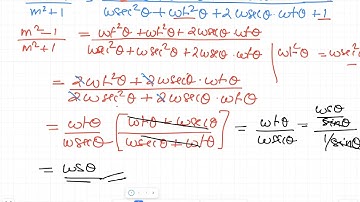 m²+1 cosec²θ + cot²θ + 2 cosecθ · cotθ + 1
m²-1 / m²+1 = cot²θ + cot²θ + 2cosecθ · cotθ / cosec²θ + cosec²θ + 2cosecθ · cotθ | cot²θ = cosec²
= 2cot²θ + 2cosecθ · cotθ / 2cosec²θ + 2cosecθ · cotθ
= cotθ / cosecθ [ cotθ + cosecθ / cosecθ + cotθ ] = cotθ / cosecθ = cosθ / sinθ / 1/sinθ
= cosθ